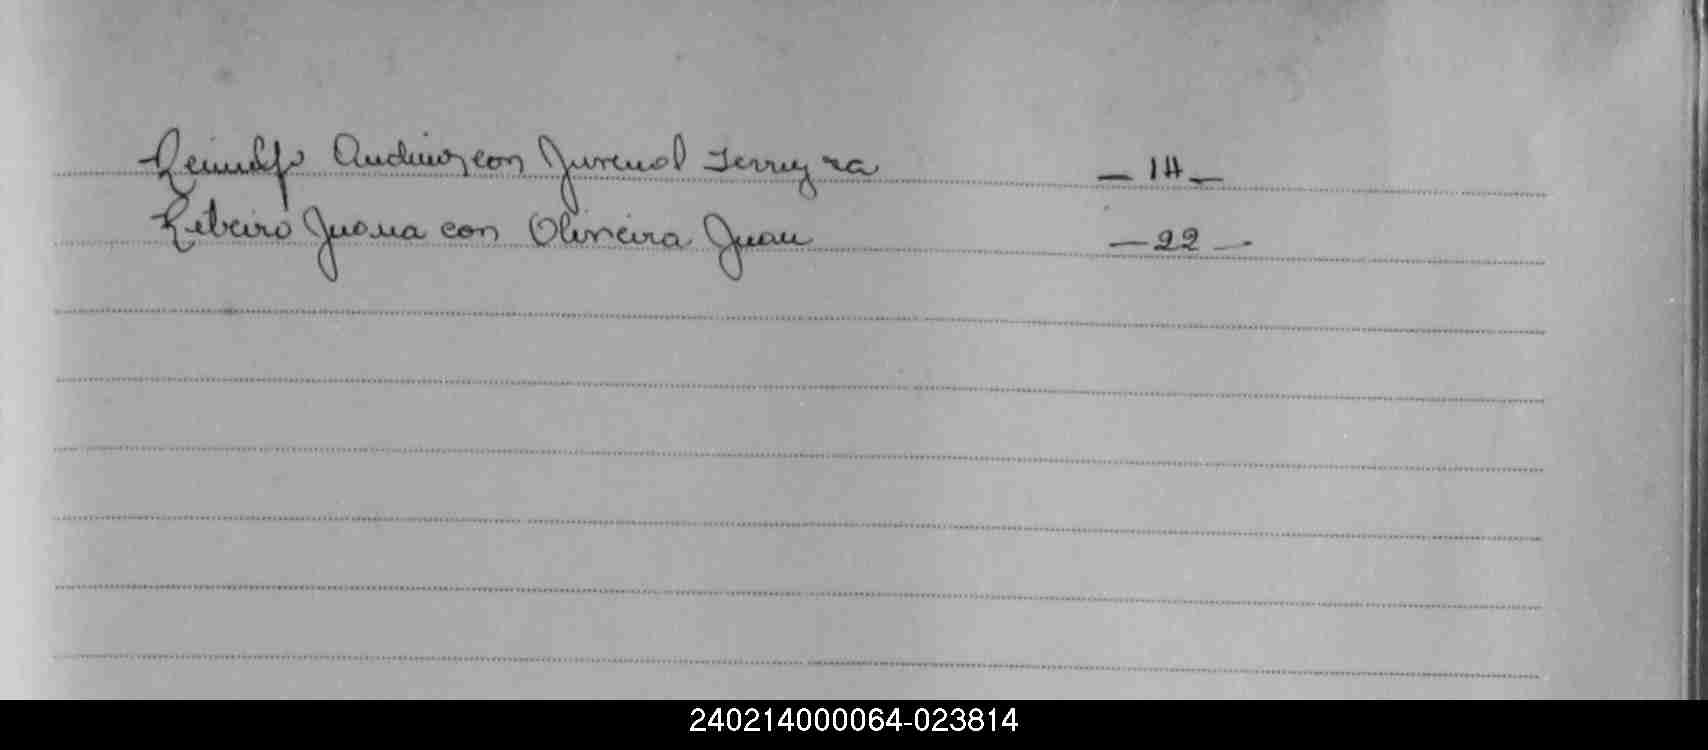 con Juvenal Ferreyra — 14 —
Ribeiro Juana con Oliveira Juan — 22 —
240214000064-023814